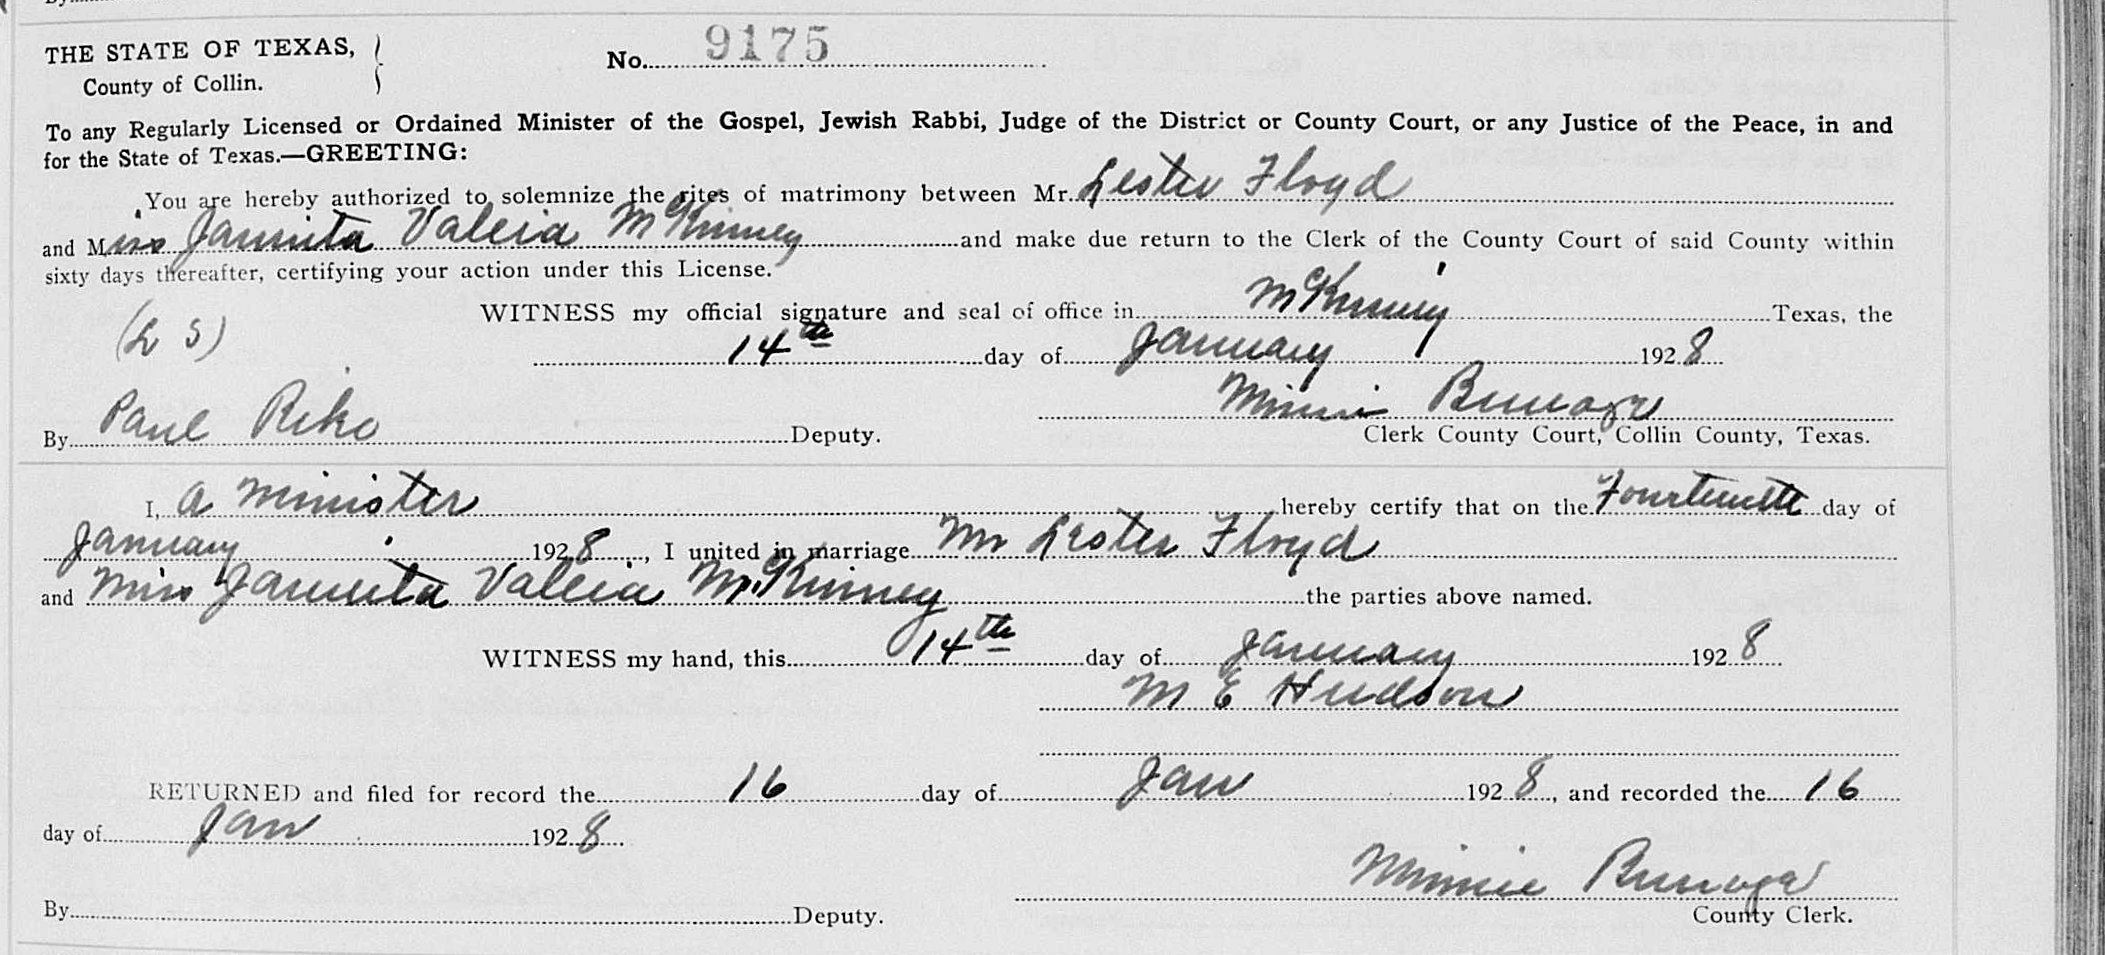 THE STATE OF TEXAS,
County of Collin.
No. 9175
To any Regularly Licensed or Ordained Minister of the Gospel, Jewish Rabbi, Judge of the District or County Court, or any Justice of the Peace, in and
for the State of Texas.—GREETING:
You are hereby authorized to solemnize the rites of matrimony between Mr. Lester Floyd
and Miss Jaunita Valeria McKinney and make due return to the Clerk of the County Court of said County within
sixty days thereafter, certifying your action under this License.
WITNESS my official signature and seal of office in McKinney Texas, the
(L S)
14th day of January 1928
Minnie
By Paul Deputy.
Clerk County Court, Collin County, Texas.
I, a minister hereby certify that on the Fourteenth day of
January 1928, I united in marriage Mr Lester Floyd
and Miss Jaunita Valeria McKinney the parties above named.
WITNESS my hand, this 14th day of January 1928
M E Hudson
RETURNED and filed for record the 16 day of Jan 1928, and recorded the 16
day of Jan 1928.
Minnie
By Deputy.
County Clerk.